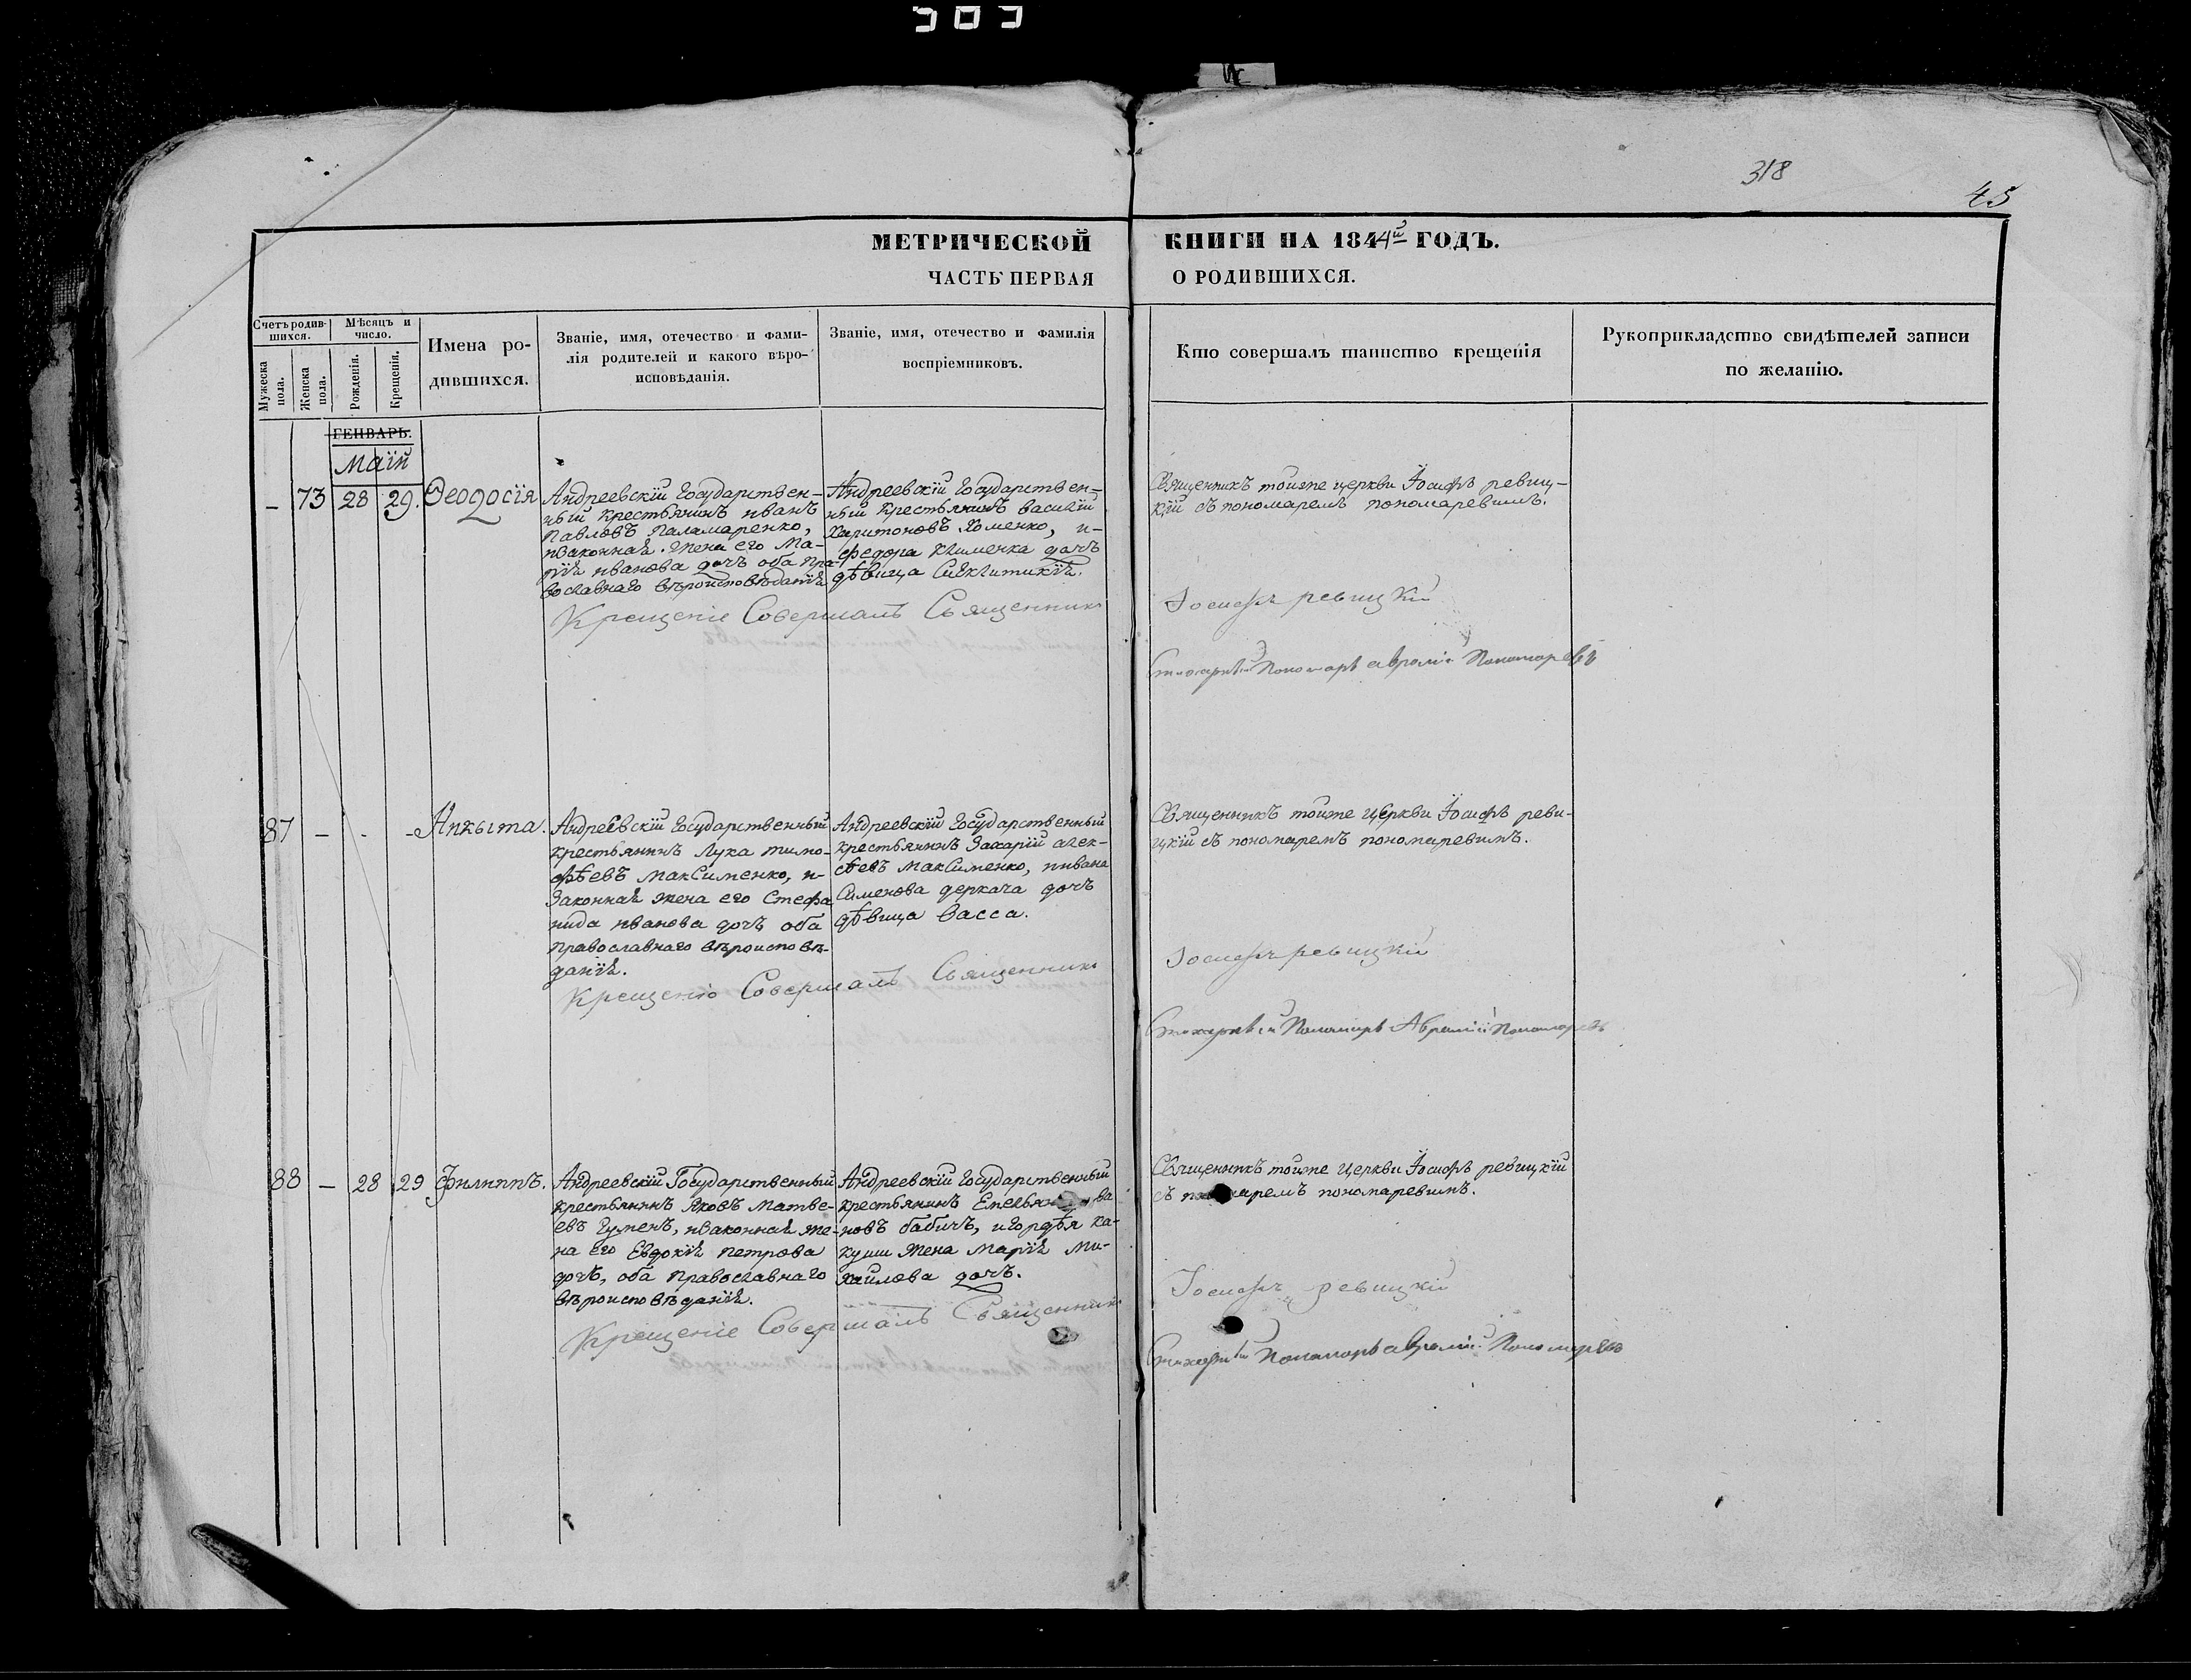 318
45
МЕТРИЧЕСКОЙ КНИГИ НА 1844й ГОДЪ.
ЧАСТЬ ПЕРВАЯ О РОДИВШИХСЯ.
Счетъ родив-
шихся.
Мужеска пола.
Женска пола.
Мѣсяцъ и
число.
Рожденія.
Крещенія.
Имена ро-
дившихся.
Званіе, имя, отечество и фами-
лія родителей и какого вѣро-
исповѣданія.
Званіе, имя, отечество и фамилія
воспріемниковъ.
Кто совершалъ таинство крещенія
Рукоприкладство свидѣтелей записи
по желанію.
ГЕНВАРЬ.
Маій
– 73 28 29. Ѳеодосія
Андреевскій Государствен-
ный крестьянинъ иванъ
Павловъ Паламаренко,
изаконная жена его Ма-
рія иванова дочъ оба пра-
вославнаго вѣроисповѣданія
Андреевскій Государствен-
ный крестьянинъ василій
Харитоновъ Хоменко, и-
федора клименка дочъ
дѣвица Сиклитикія.
Священникъ тойже церкви Іосифъ ревиц-
кій съ пономаремъ пономаревимъ.
Крещеніе Совершалъ Священникъ Іосифъ ревицкій
Стихарный Пономарь аврамій Пономаревъ
87 – - - Никыта.
Андреевскій Государственный
крестьянинъ Лука тимо-
фѣевъ Максименко, и-
законная жена его Стефа
нида иванова дочъ оба
православнаго вѣроисповѣ-
данія.
Андреевскій Государственный
крестьянинъ Захарій алек-
сѣевъ Максименко, иивана
Сименова деркача дочъ
дѣвица Васса.
Священникъ тойже церкви Іосифъ реви-
цкій съ пономаремъ пономаревимъ.
Крещеніе Совершалъ Священникъ Іосифъ ревицкій
Стихарный Пономарь Аврамій Пономаревъ
88 – 28 29 Филиппъ.
Андреевскій Государственный
крестьянинъ Яковъ Матве-
евъ Гуменъ, изаконная же-
на его Евдокія петрова
дочъ, оба православнаго
вѣроисповѣданія.
Андреевскій Государственный
крестьянинъ
новъ бабичъ, игордѣя ка-
куши жена Марія Ми-
хайлова дочъ.
Священникъ тойже церкви Іосифъ ревицкій
съ пономаремъ пономаревимъ.
Крещеніе Совершалъ Священникъ Іосифъ ревицкій
Стихарный Пономарь аврамій Пономаревъ